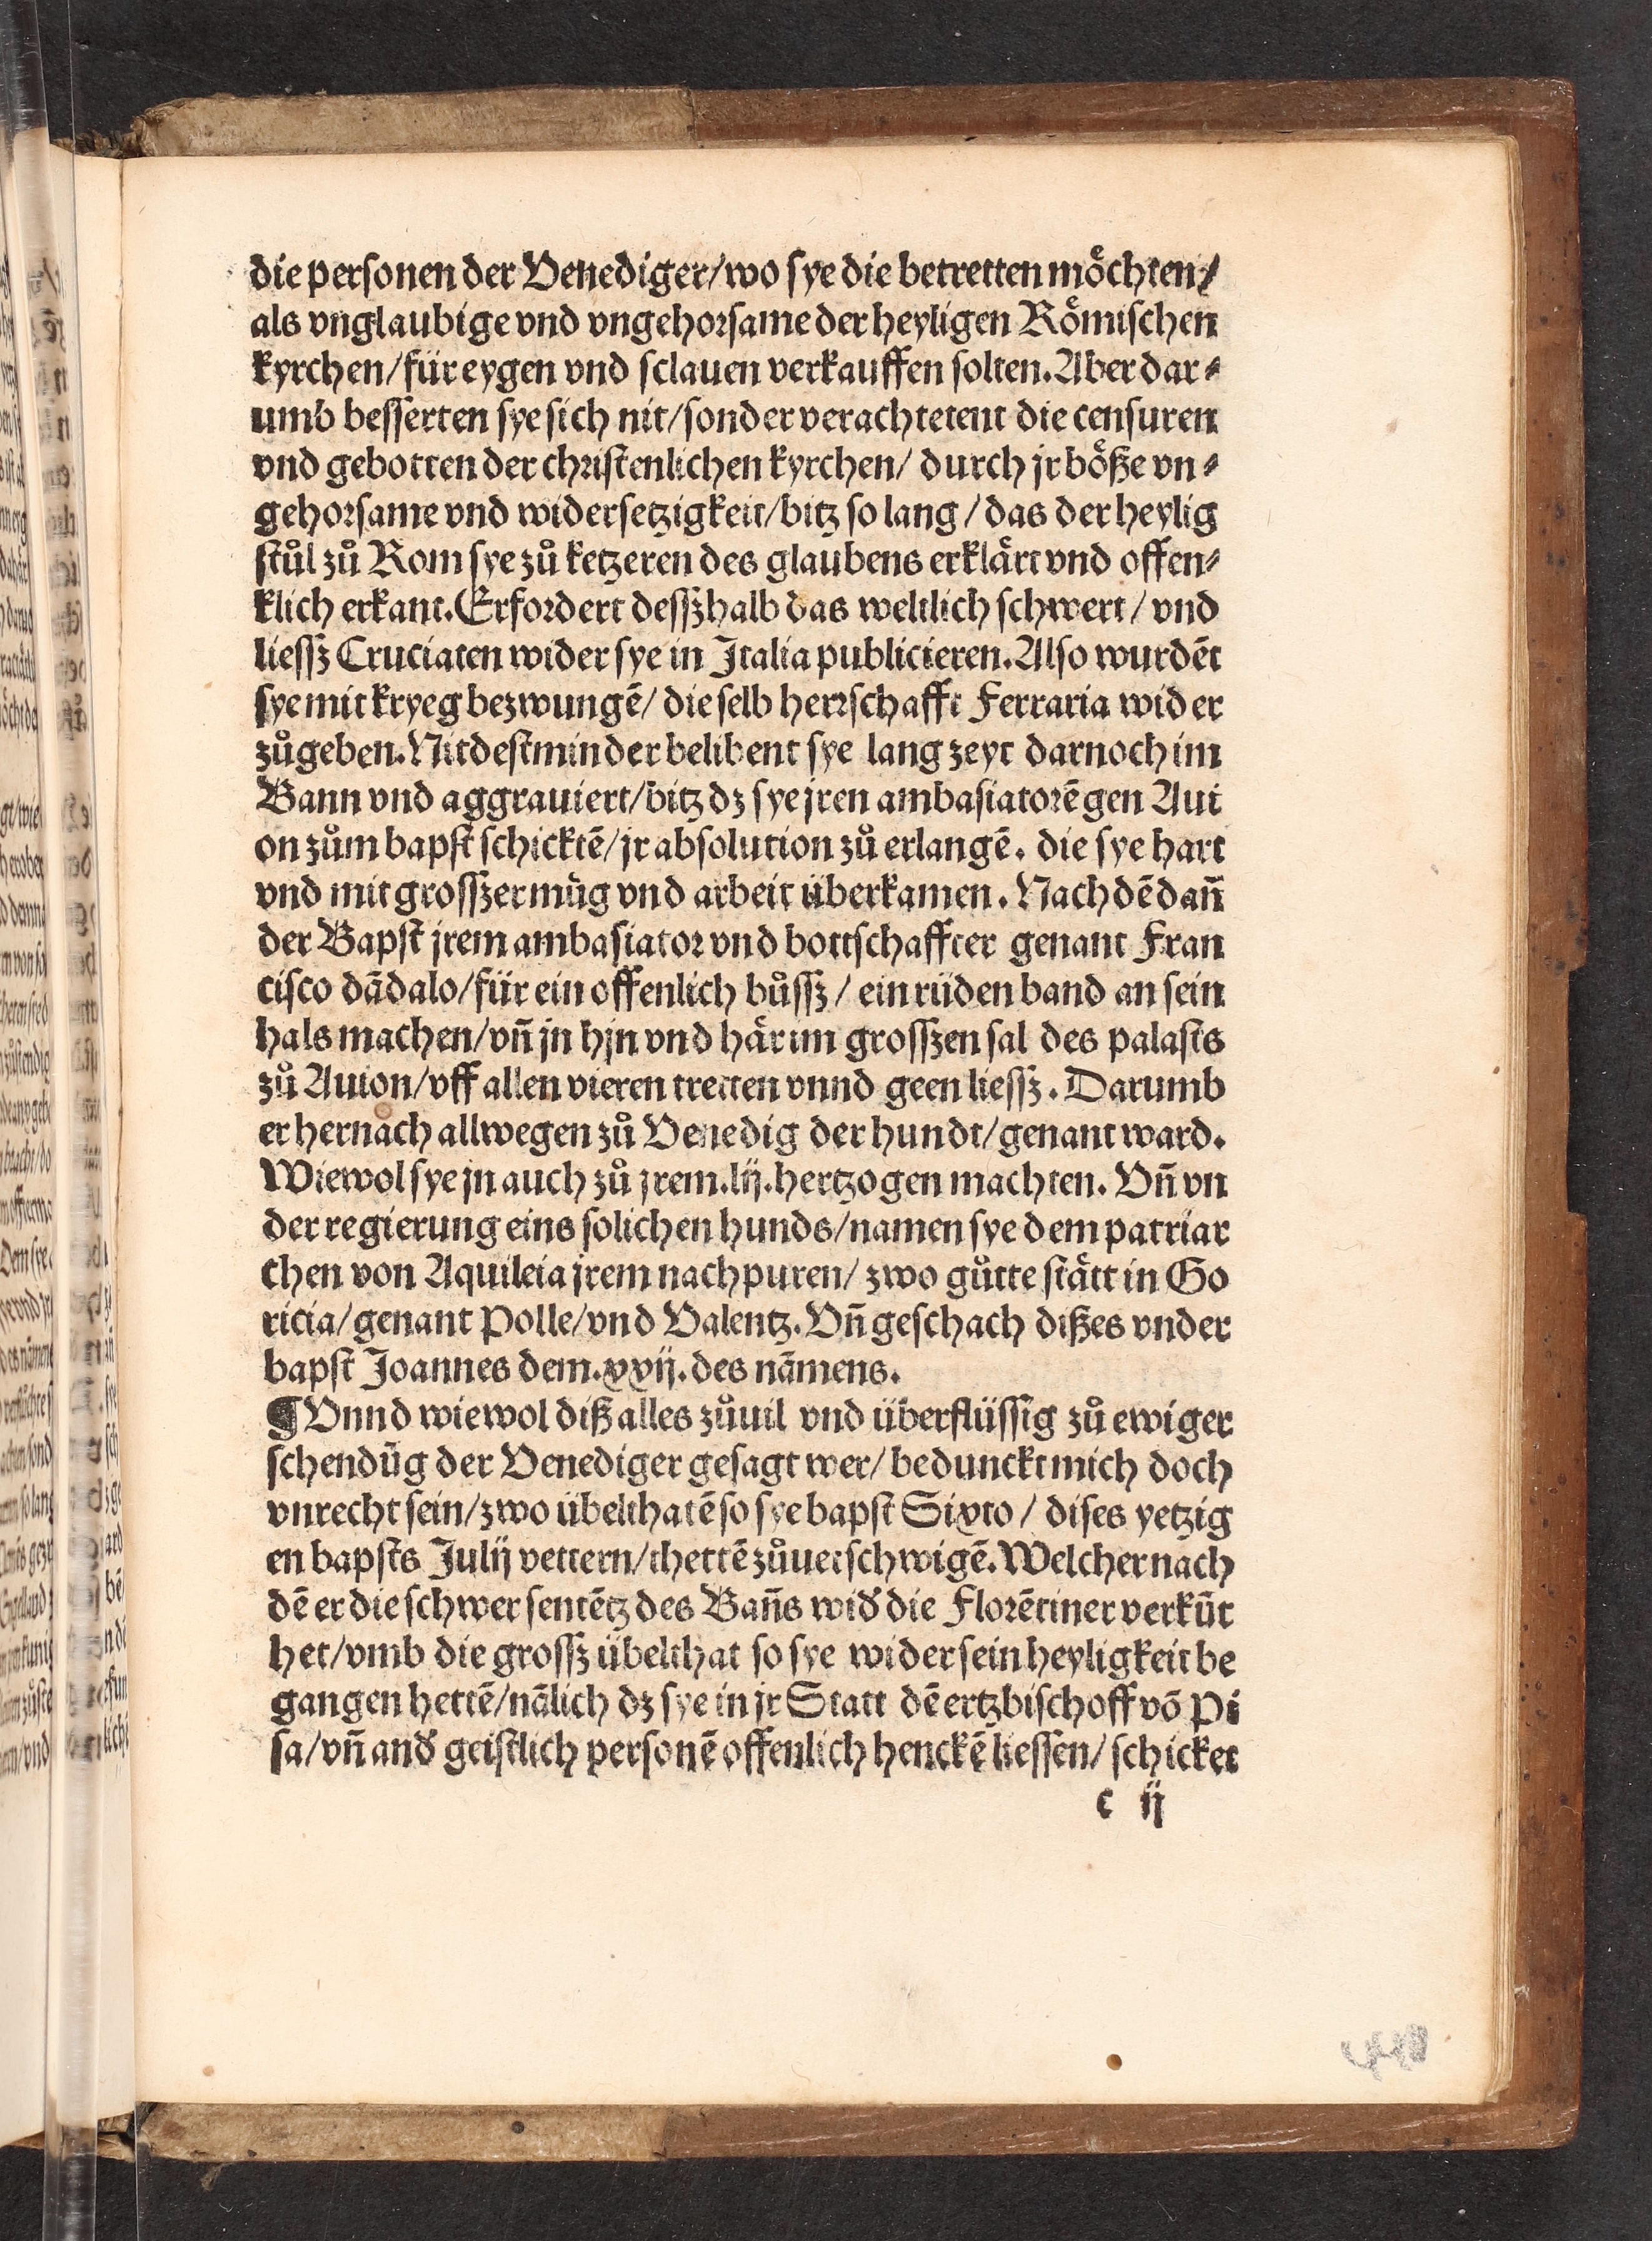 die personen der Venediger/wo sye die betretten moͤchten/
als vnglaubige vnd vngehorsame der heyligen Roͤmischen
kyrchen/für eygen vnd sclauen verkauffen solten. Aber dar⸗
umb besserten sye sich nit/sonder verachtetent die censuren
vnd gebotten der christenlichen kyrchen/ durch jr boͤße vn⸗
gehorsame vnd widersetzigkeit/bitz so lang/das der heylig
stůl zů Rom sye zů ketzeren des glaubens erklaͤrt vnd offen⸗
klich erkant. Erfordert desßhalb das weltlich schwert/ vnd
liessz Cruciaten wider sye in Italia publicieren. Also wurdēt
sye mit kryeg bezwungē/ die selb herrschafft Ferraria wider
zůgeben. Nitdestminder belibent sye lang zeyt darnoch im
Bann vnd aggrauiert/bitz dz sye jren ambasiatorē gen Aui
on zům bapst schicktē/jr absolution zů erlangē. die sye hart
vnd mit grosszer müg vnd arbeit überkamen. Nach dē dañ
der Bapst jrem ambasiator vnd bottschaffter genant Fran
cisco dādalo/für ein offenlich bůssz/ ein rüden band an sein
hals machen/vñ jn hjn vnd haͤr im grosszen sal des palasts
zů Auion/vff allen vieren tretten vnnd geen liessz. Darumb
er hernach allwegen zů Venedig der hundt/genant ward.
Wiewol sye jn auch zů jrem.lij.hertzogen machten. Vñ vn
der regierung eins solichen hunds/namen sye dem patriar
chen von Aquileia jrem nachpuren/ zwo gůtte staͤtt in Go
ricia/genant Polle/vnd Valentz. Vñ geschach dißes vnder
bapst Joannes dem.xxij.des nāmens.
¶Vnnd wiewol diß alles zůuil vnd überflüssig zů ewiger
schendūg der Venediger gesagt wer/ bedunckt mich doch
vnrecht sein/zwo übelthatē so sye bapst Sixto/ dises yetzig
en bapsts Julij vettern/thettē zůuerschwigē. Welcher nach
dē er die schwer sentētz des Bañs wid̕ die Florētiner verkūt
het/vmb die grossz übelthat so sye wider sein heyligkeit be
gangen hettē/nālich dz sye in jr Statt dē ertzbischoff vō Pi
sa/vñ and̕ geistlich personē offenlich henckē liessen/ schicket
c ij